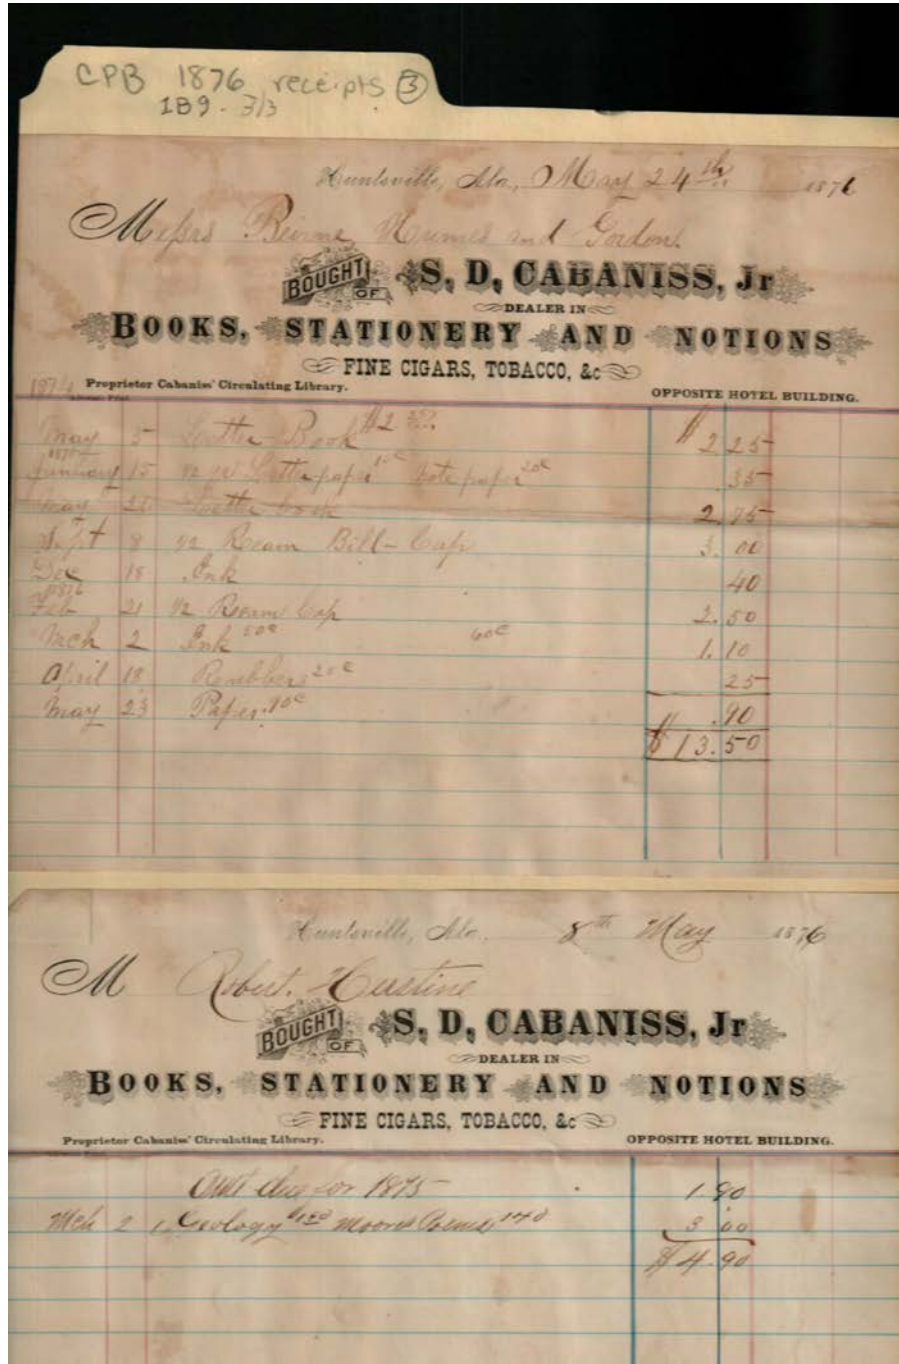 CPB 1876 receipts 3
1B9 - 3/3
Huntsville, Ala, May 24th 1876
Messrs Beirne, Humes and Gordon.
BOUGHT OF S. D. CABANISS, Jr
DEALER IN
BOOKS, STATIONERY AND NOTIONS
FINE CIGARS, TOBACCO, &c
1874 Proprietor Cabaniss' Circulating Library. OPPOSITE HOTEL BUILDING.
May 5 Letter Book $2 25 $2.25
1875
January 15 1/2 qr Letter paper 15c Note paper 20c .35
May Letter book 2.75
Sept 8 1/2 Ream Bill-Cap 3.00
Dec 18 Ink 40
1876
Feb 21 1/2 Ream Cap 2.50
Mch 2 Ink 50c 60c 1.10
April 18 25
May 23 Paper 90c .90
$13.50
Huntsville, Ala. 8th May 1876
M Robert
BOUGHT OF S. D. CABANISS, Jr
DEALER IN
BOOKS, STATIONERY AND NOTIONS
FINE CIGARS, TOBACCO, &c
Proprietor Cabaniss' Circulating Library. OPPOSITE HOTEL BUILDING.
Amt due for 1875 1.90
Mch 2 1 Geology Moores Poems 3.00
$4.90